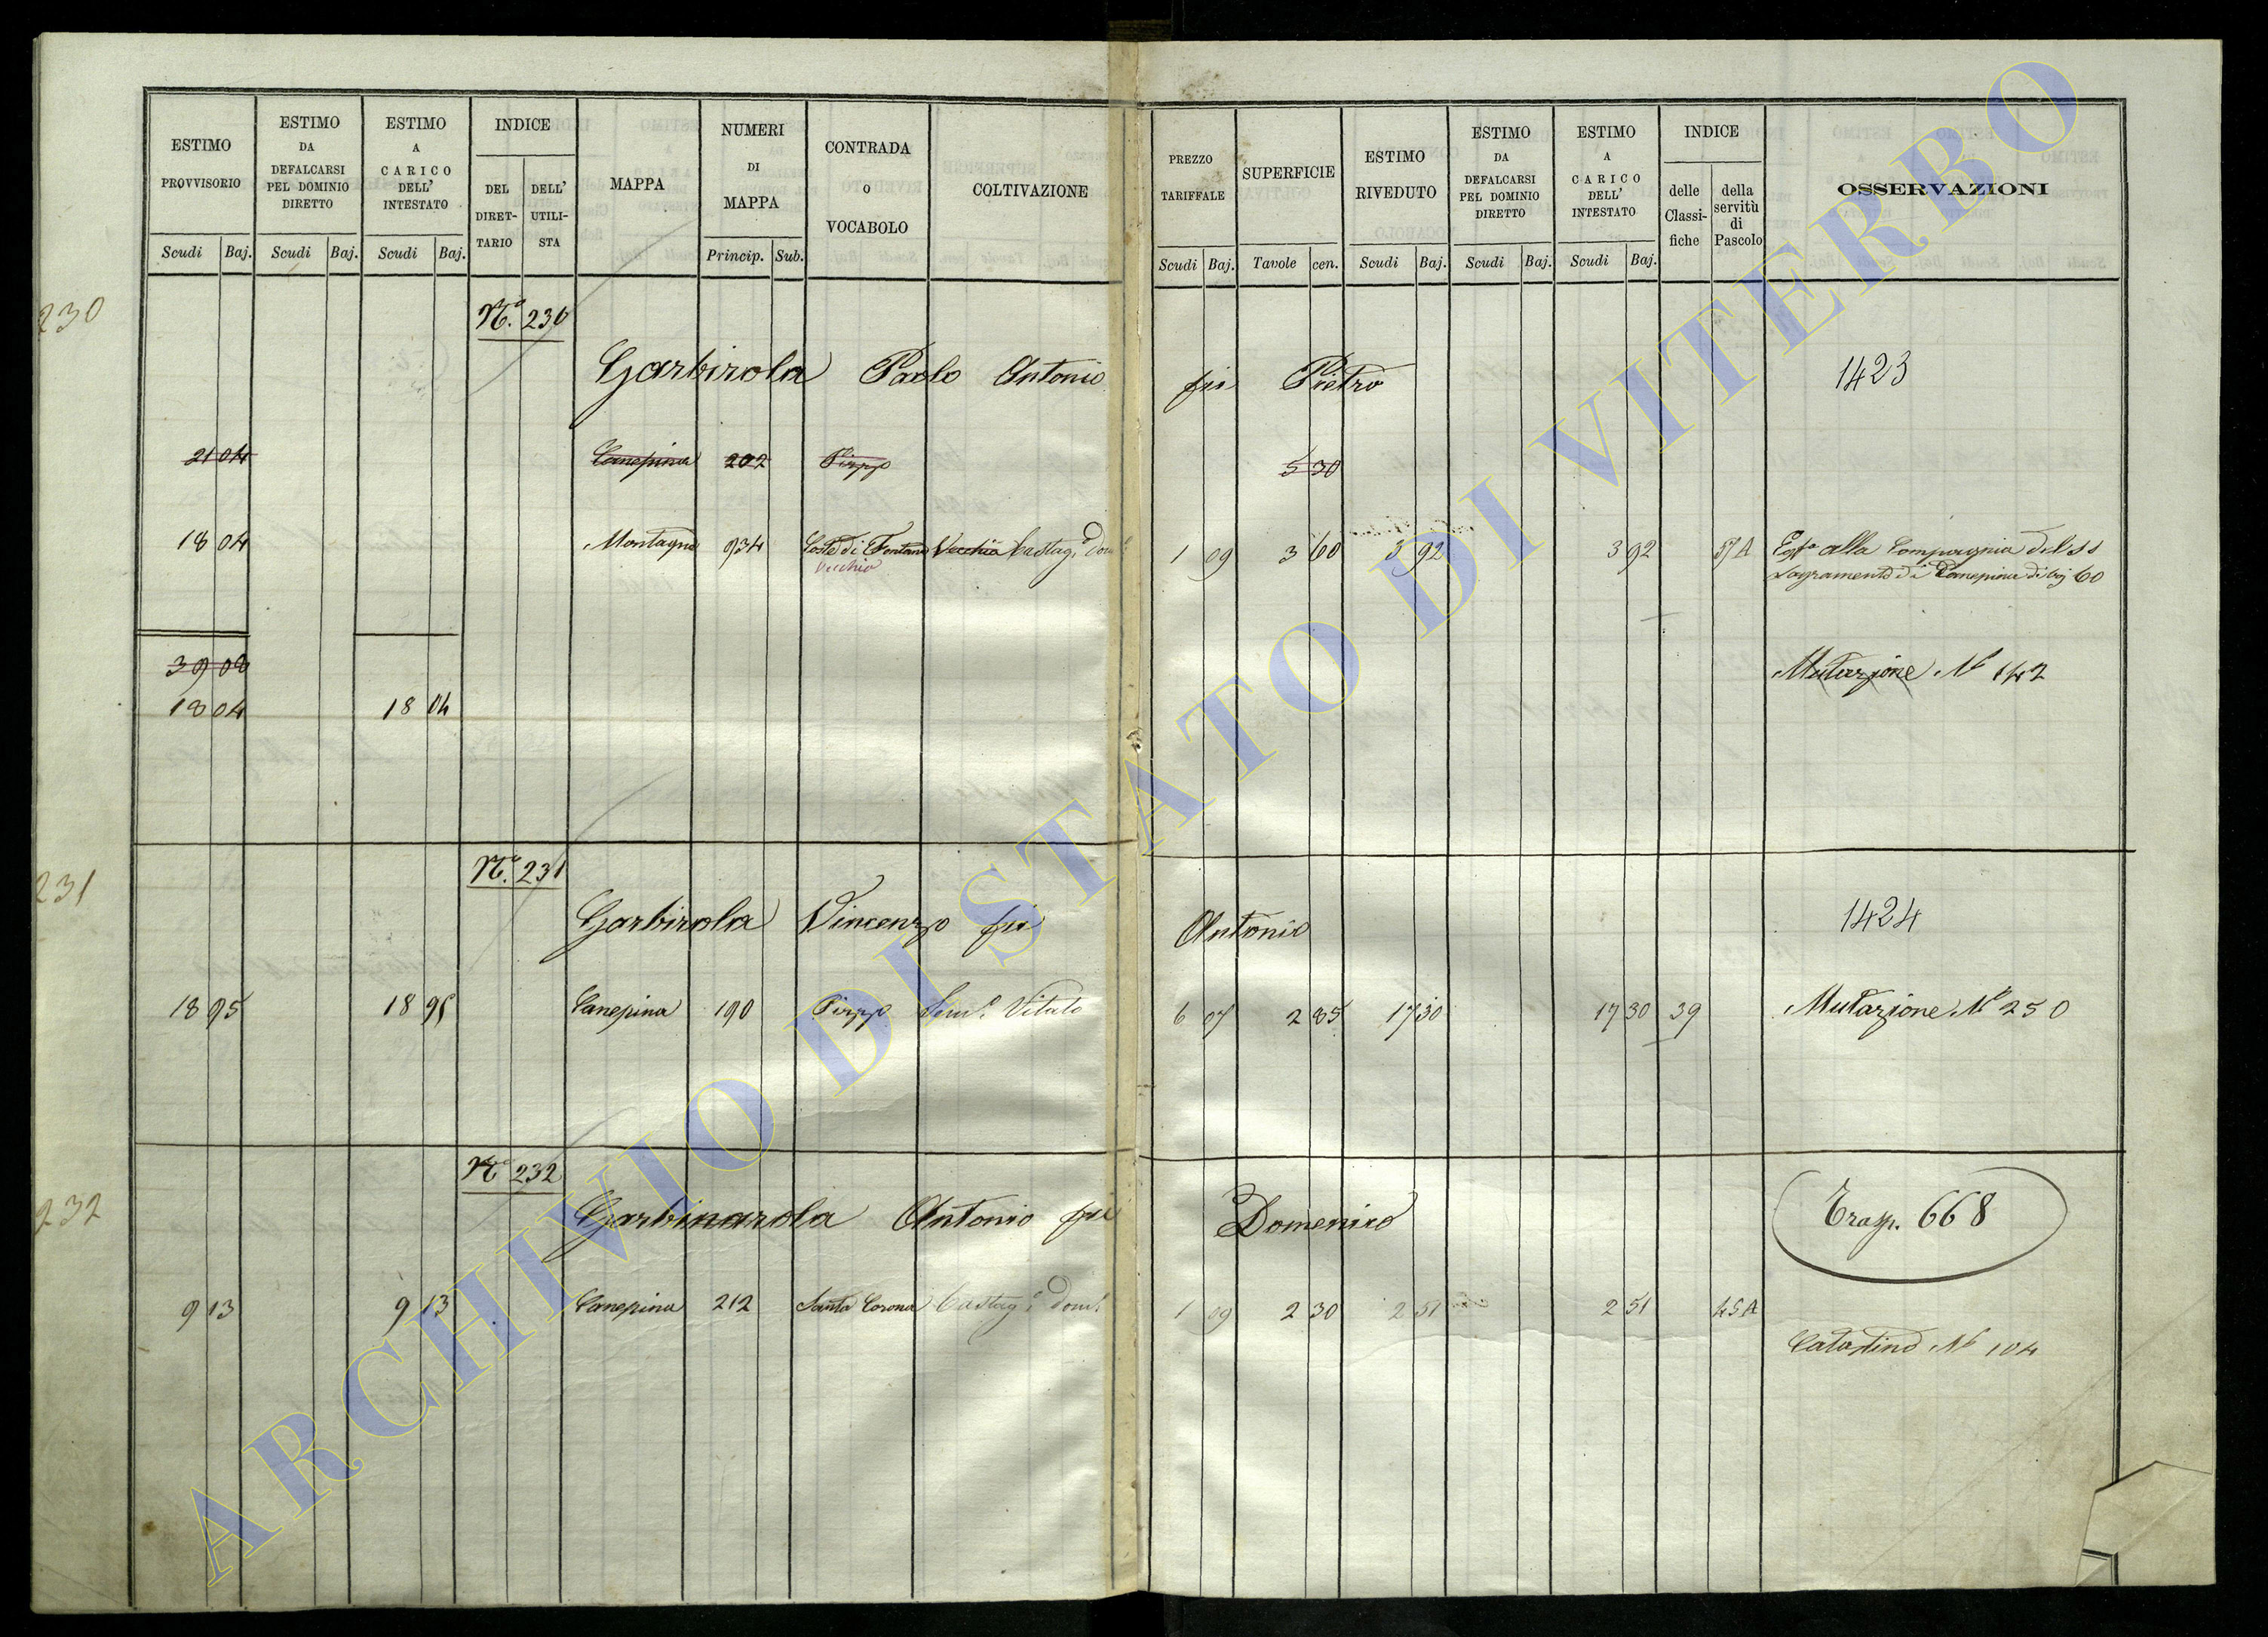 ESTIMO PROVVISORIO Scudi Baj.
ESTIMO DA DEFALCARSI PEL DOMINIO DIRETTO Scudi Baj.
ESTIMO A CARICO DELL' INTESTATO Scudi Baj.
INDICE DEL DIRETTARIO DELL' UTILISTA
MAPPA
NUMERI DI MAPPA Princip. Sub.
CONTRADA O VOCABOLO
COLTIVAZIONE
PREZZO TARIFFALE Scudi Baj.
SUPERFICIE Tavole cen.
ESTIMO RIVEDUTO Scudi Baj.
ESTIMO DA DEFALCARSI PEL DOMINIO DIRETTO Scudi Baj.
ESTIMO A CARICO DELL' INTESTATO Scudi Baj.
INDICE delle Classifiche della servitù di Pascolo
OSSERVAZIONI
230 N.° 230
Garbirola Paolo Antonio fu Pietro 1423
21 04 Canepina 202 5 30
18 04 Montagna 934 Coste di Fontana Vecchia Castag.° dom.° 1 09 3 60 3 92 3 92 57 A alla Compagnia del SS
Vecchia Sagramento di Canepina di bj 60
39 08 Mutazione N° 142
18 04 18 04
231 N.° 231
Garbirola Vincenzo fu Antonio 1424
18 95 18 95 Canepina 190 Sem.° Vitato 6 07 2 85 17 30 17 30 39 Mutazione N° 250
232 N° 232
Garbinarola Antonio fu Domenico Trasp. 668
9 13 9 13 Canepina 212 Santa Corona Castag.° dom.° 1 09 2 30 2 51 2 51 45A
Catastino N° 104
ARCHIVIO DI STATO DI VITERBO